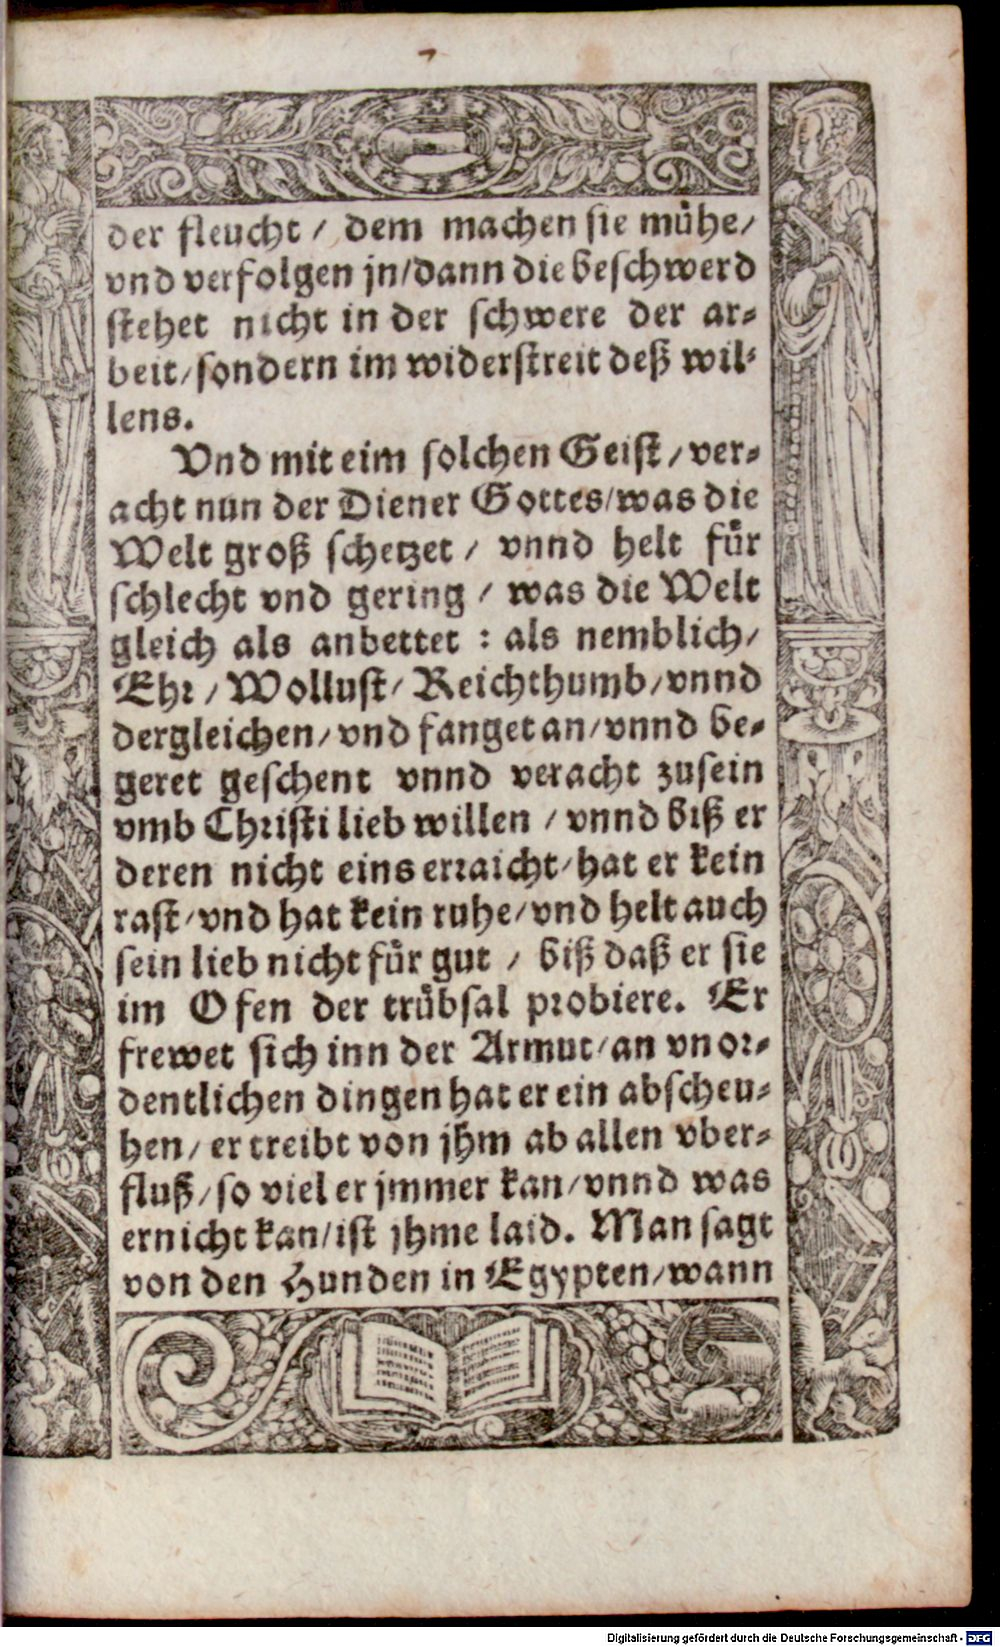 der fleucht / dem machen sie mühe/
vnd verfolgen jn/dann die beschwerd
stehet nicht in der schwere der ar-
beit/sondern im widerstreit deß wil-
lens.
Vnd mit eim solchen Geist / ver-
acht nun der Diener Gottes/was die
Welt groß schetzet / vnnd helt für
schlecht vnd gering / was die Welt
gleich als anbettet : als nemblich/
Ehr / Wollust/ Reichthumb/vnnd
dergleichen/vnd fanget an/vnnd be-
geret geschent vnnd veracht zusein
vmb Christi lieb willen / vnnd biß er
deren nicht eins erraicht/hat er kein
rast/vnd hat kein ruhe/vnd helt auch
sein lieb nicht für gut / biß daß er sie
im Ofen der trübsal probiere. Er
frewet sich inn der Armut/an vnor-
dentlichen dingen hat er ein abscheu-
hen/ er treibt von jhm ab allen vber-
fluß/so viel er jmmer kan/vnnd was
er nicht kan/ist jhme laid. Man sagt
von den Hunden in Egypten/wann
Digitalisierung gefördert durch die Deutsche Forschungsgemeinschaft - DFG